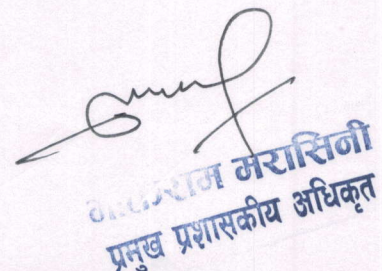 मरासिनी
प्रमुख प्रशासकीय अधिकृत